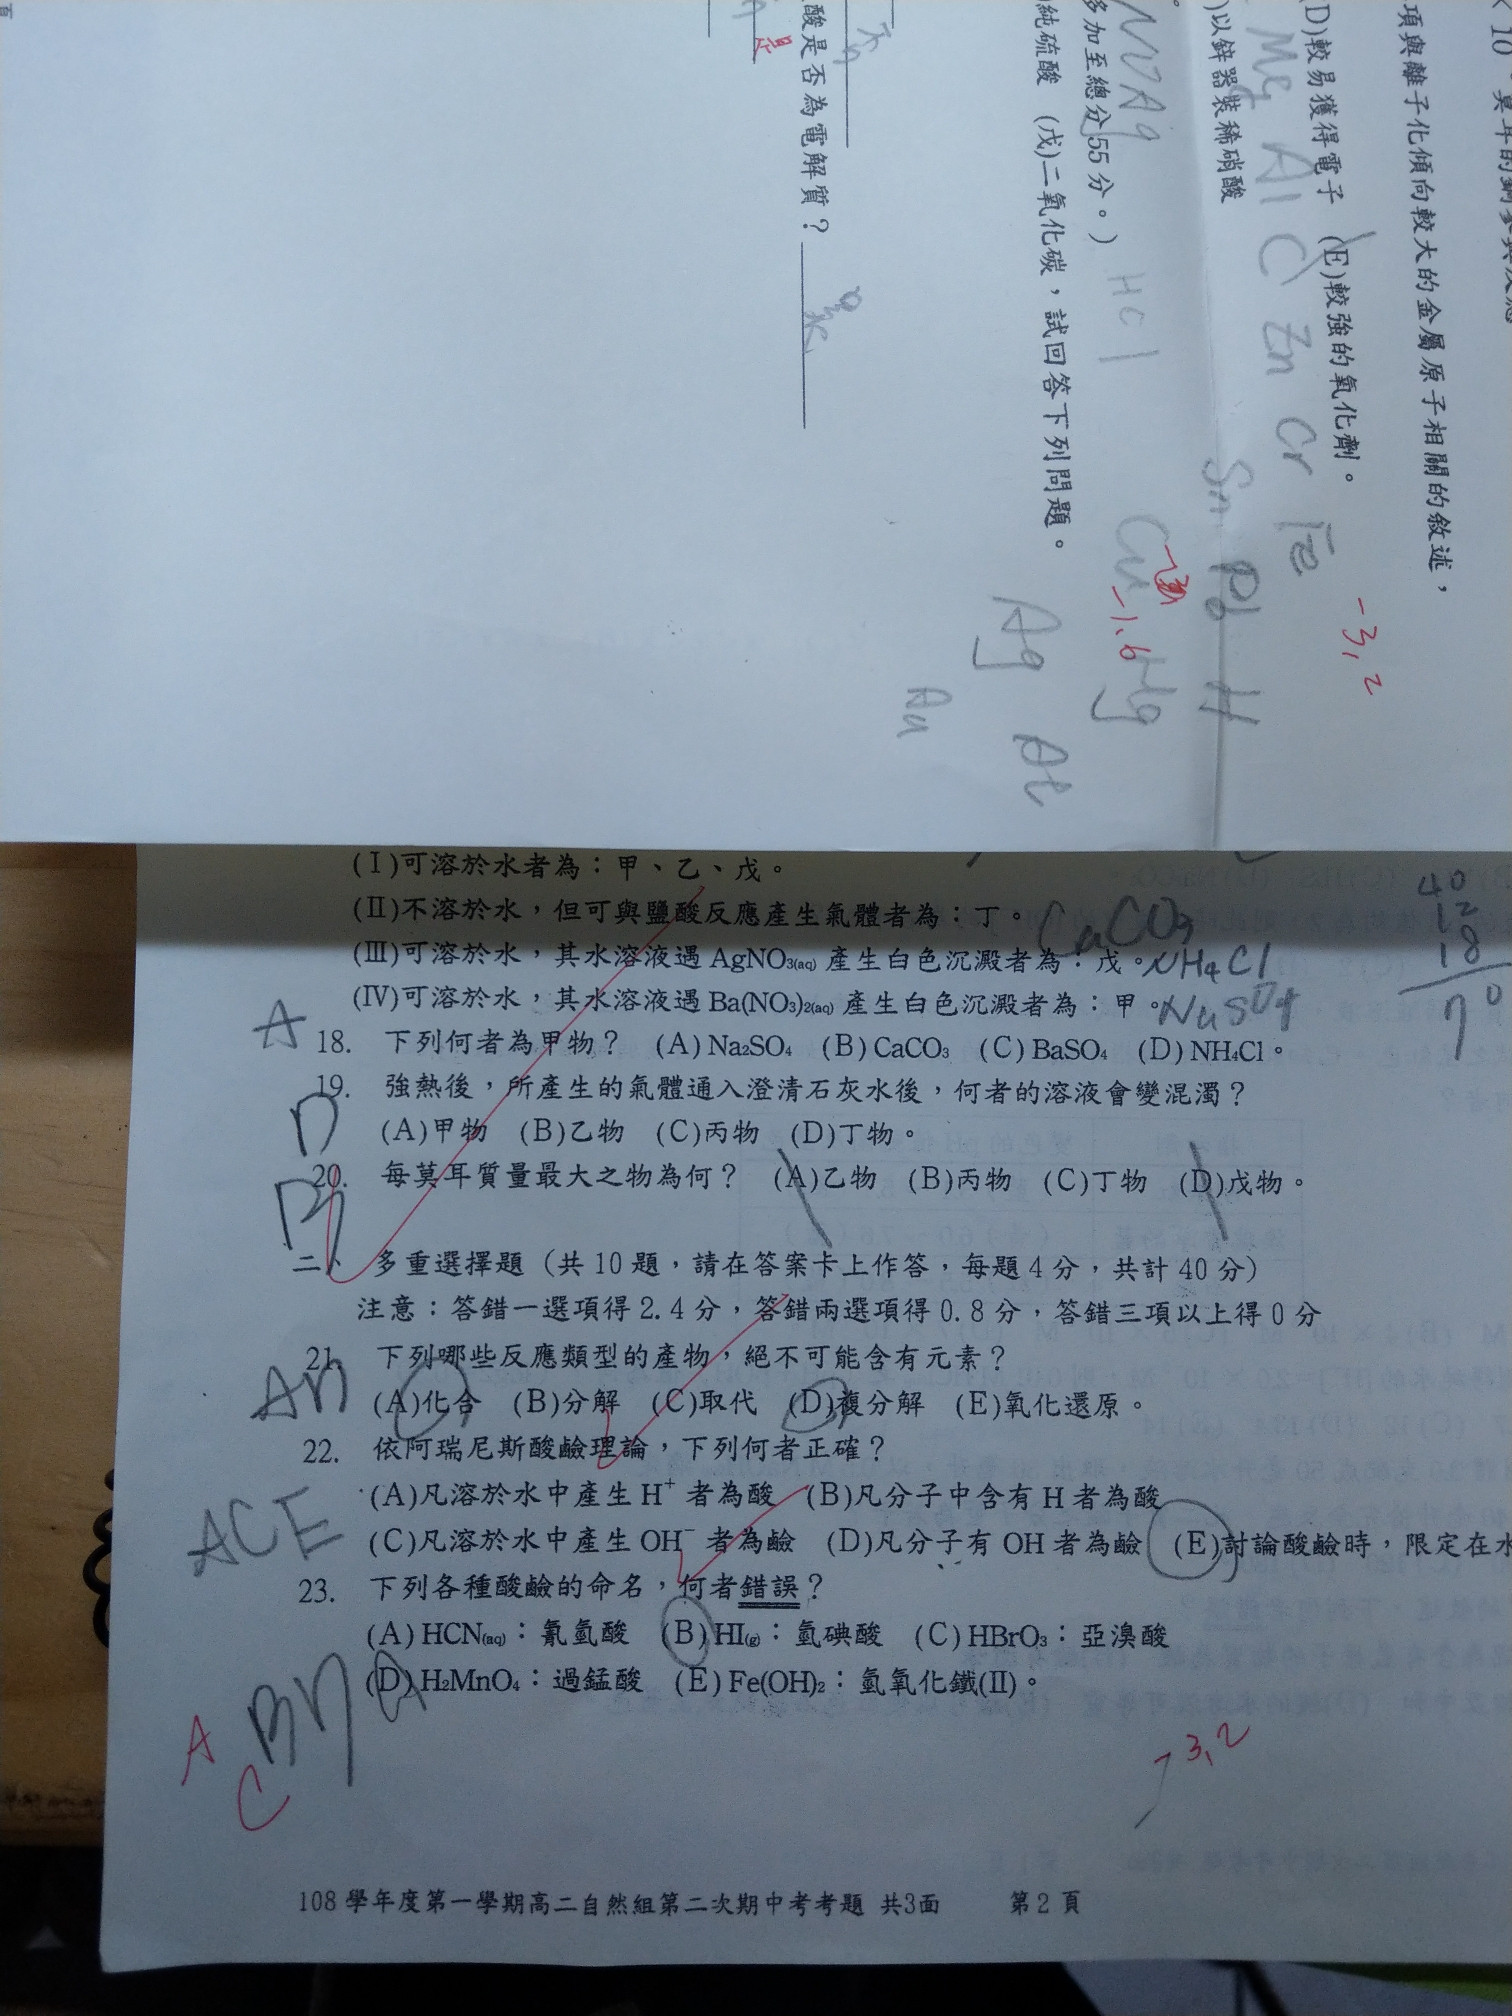 項與離子化傾向較大的金屬原子相關的敘述，
(D)較易獲得電子 (E)較強的氧化劑。
)以鋅器裝稀硝酸
多加至總分55分。)
純硫酸 (戊)二氧化碳，試回答下列問題。
酸是否為電解質？
是
Mg Al C Zn Cr Fe
Sn Pb H
HCl
Cu Hg
Ag
Au
-3,2
-1.6
(Ⅰ)可溶於水者為：甲、乙、戊。
(Ⅱ)不溶於水，但可與鹽酸反應產生氣體者為：丁。CaCO3
(Ⅲ)可溶於水，其水溶液遇 AgNO3(aq) 產生白色沉澱者為：戊。NH4Cl
(Ⅳ)可溶於水，其水溶液遇 Ba(NO3)2(aq) 產生白色沉澱者為：甲。NaSO4
40
12
18
70
A 18. 下列何者為甲物？ (A) Na2SO4 (B) CaCO3 (C) BaSO4 (D) NH4Cl。
D 19. 強熱後，所產生的氣體通入澄清石灰水後，何者的溶液會變混濁？
(A)甲物 (B)乙物 (C)丙物 (D)丁物。
B 20. 每莫耳質量最大之物為何？ (A)乙物 (B)丙物 (C)丁物 (D)戊物。
二、 多重選擇題 (共 10 題，請在答案卡上作答，每題 4 分，共計 40 分)
注意：答錯一選項得 2.4 分，答錯兩選項得 0.8 分，答錯三項以上得 0 分
21. 下列哪些反應類型的產物，絕不可能含有元素？
AD (A)化合 (B)分解 (C)取代 (D)複分解 (E)氧化還原。
22. 依阿瑞尼斯酸鹼理論，下列何者正確？
(A)凡溶於水中產生 H+ 者為酸 (B)凡分子中含有 H 者為酸
ACE (C)凡溶於水中產生 OH- 者為鹼 (D)凡分子有 OH 者為鹼 (E)討論酸鹼時，限定在水
23. 下列各種酸鹼的命名，何者錯誤？
(A) HCN(aq)：氰氫酸 (B) HI(g)：氫碘酸 (C) HBrO3：亞溴酸
(D) H2MnO4：過錳酸 (E) Fe(OH)2：氫氧化鐵(II)。
BD
A
C
-3,2
108 學年度第一學期高二自然組第二次期中考考題 共3面 第 2 頁